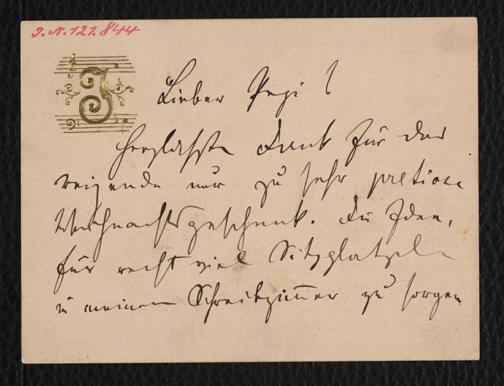 I. N. 121.844
Lieber Pepi!
Herzlichsten Dank für das
reizende nur zu sehr pretiose
Weihnachtsgeschenk. Die Idee,
für recht viel Sitzplatzln
in meinem Schreibzimmer zu sorgen